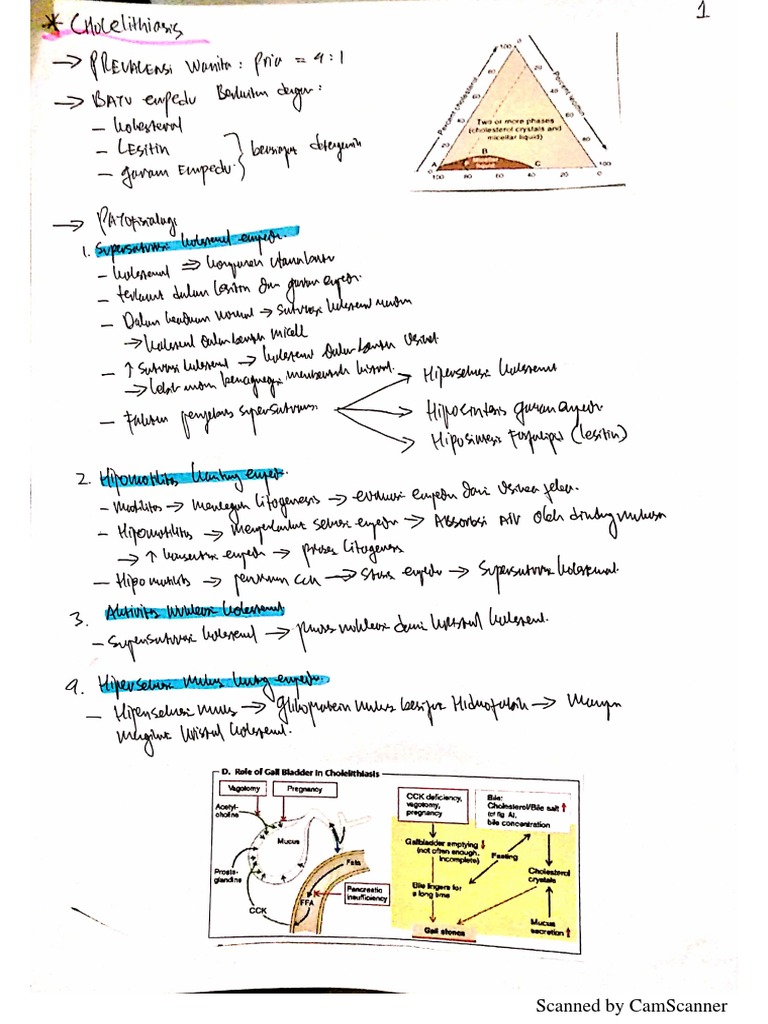 1
* Cholelithiasis
→ PREVALENSI Wanita : Pria = 4 : 1
→ BATU empedu Berkaitan dengan :
– Kolesterol
– Lesitin
– garam Empedu } bersifat detergenik
Percent cholesterol
Percent lecithin
Two or more phases
(cholesterol crystals and
micellar liquid)
A B C
100 80 60 40 20 0
→ PATofisiologi
1. Supersaturasi kolesterol empedu.
– kolesterol ⇒ komponen utama batu
– terlarut dalam lesitin dan garam empedu.
– Dalam keadaan normal → Saturasi kolesterol
→ kolesterol dalam bentuk micell
– ↑ Saturasi kolesterol → kolesterol dalam bentuk vesikel
→ Lebih mudah beragregasi membentuk kristal.
– Faktor penyebab supersaturasi
Hipersekresi kolesterol
Hiposintesis garam empedu.
Hiposintesis Fosfolipid (lesitin)
2. Hipomotilitas kantung empedu.
– motilitas → mencegah litogenesis → evakuasi empedu dari vesica felea.
– Hipomotilitas → sekresi empedu → Absorbsi Air oleh dinding mukosa
→ ↑ konsentrasi empedu → proses litogenesis
– Hipomotilitas → penurunan CCK → Stasis empedu → Supersaturasi kolesterol.
3. Aktivitas nukleasi kolesterol
– Supersaturasi kolesterol → proses nukleasi dari kristal kolesterol.
4. Hipersekresi mukus kantung empedu.
– Hipersekresi mukus → glikoprotein mukus bersifat Hidrofobik → Mampu
mengikat kristal kolesterol.
D. Role of Gall Bladder in Cholelithiasis
Vagotomy
Pregnancy
Acetyl-
choline
Mucus
Prosta-
glandins
CCK
Fats
FFA
Pancreatic
insufficiency
CCK deficiency,
vagotomy,
pregnancy
Gallbladder emptying ↓
(not often enough,
incomplete)
Bile lingers for
a long time
Gall stones
Fasting
Bile:
Cholesterol/Bile salt ↑
(cf fig A),
bile concentration
Cholesterol
crystals
Mucus
secretion ↑
Scanned by CamScanner